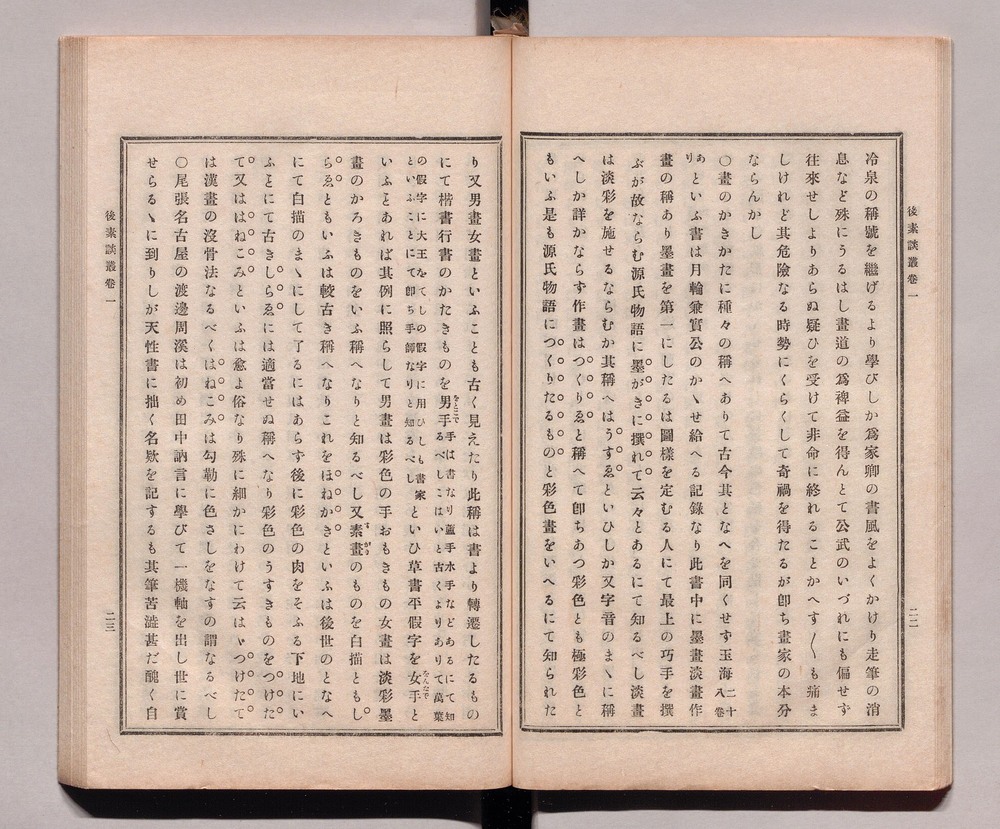 後素談叢卷一
二二
冷泉の稱號を繼げるより學びしか爲家卿の書風をよくかけり走筆の消
息など殊にうるはし畫道の爲裨益を得んとて公武のいづれにも偏せず
往來せしよりあらぬ疑ひを受けて非命に終れることかへす〱も痛ま
しけれど其危險なる時勢にくらくして奇禍を得たるが卽ち畫家の本分
ならんかし
〇畫のかきかたに種々の稱へありて古今其となへを同くせす玉海二十八卷
ありといふ書は月輪兼實公のかゝせ給へる記錄なり此書中に墨畫淡畫作
畫の稱あり墨畫を第一にしたるは圖樣を定むる人にて最上の巧手を撰
ぶが故ならむ源氏物語に墨がきに撰れて云々とあるにて知るべし淡畫
は淡彩を施せるならむか其稱へはうすゑといひしか又字音のまゝに稱
へしか詳かならす作畫はつくりゑと稱へて卽ちあつ彩色とも極彩色と
もいふ是も源氏物語につくりたるものと彩色畫をいへるにて知られた
り又男畫女畫といふことも古く見えたり此稱は書より轉遷したるもの
にて楷書行書のかたきものを男手をとこで手は書なり蘆手水手などあるにて知るべしこはいと古くよりありて萬葉
の假字に大王をてしの假字に用ひしも書家といふことにて卽ち手師なりと知るべしといひ草書平假字を女手をんなでと
いふとあれば其例に照らして男畫は彩色の手おもきもの女畫は淡彩墨
畫のかろきものをいふ稱へなりと知るべし又素畫すがきのものを白描ともし
らゑともいふは較古き稱へなりこれをほねかきといふは後世のとなへ
にて白描のまゝにして了るにはあらす後に彩色の肉をそふる下地にい
ふとにて古きしらゑには適當せぬ稱へなり彩色のうすきものをつけた
て又ははねこみといふは愈よ俗なり殊に細かにわけて云はゞつけたて
は漢畫の沒骨法なるべくはねこみは勾勒に色さしをなすの謂なるべし
〇尾張名古屋の渡邊周溪は初め田中訥言に學びて一機軸を出し世に賞
せらるゝに到りしが天性書に拙く名欵を記するも其筆苦澁甚だ醜く自
後素談叢卷一
二三